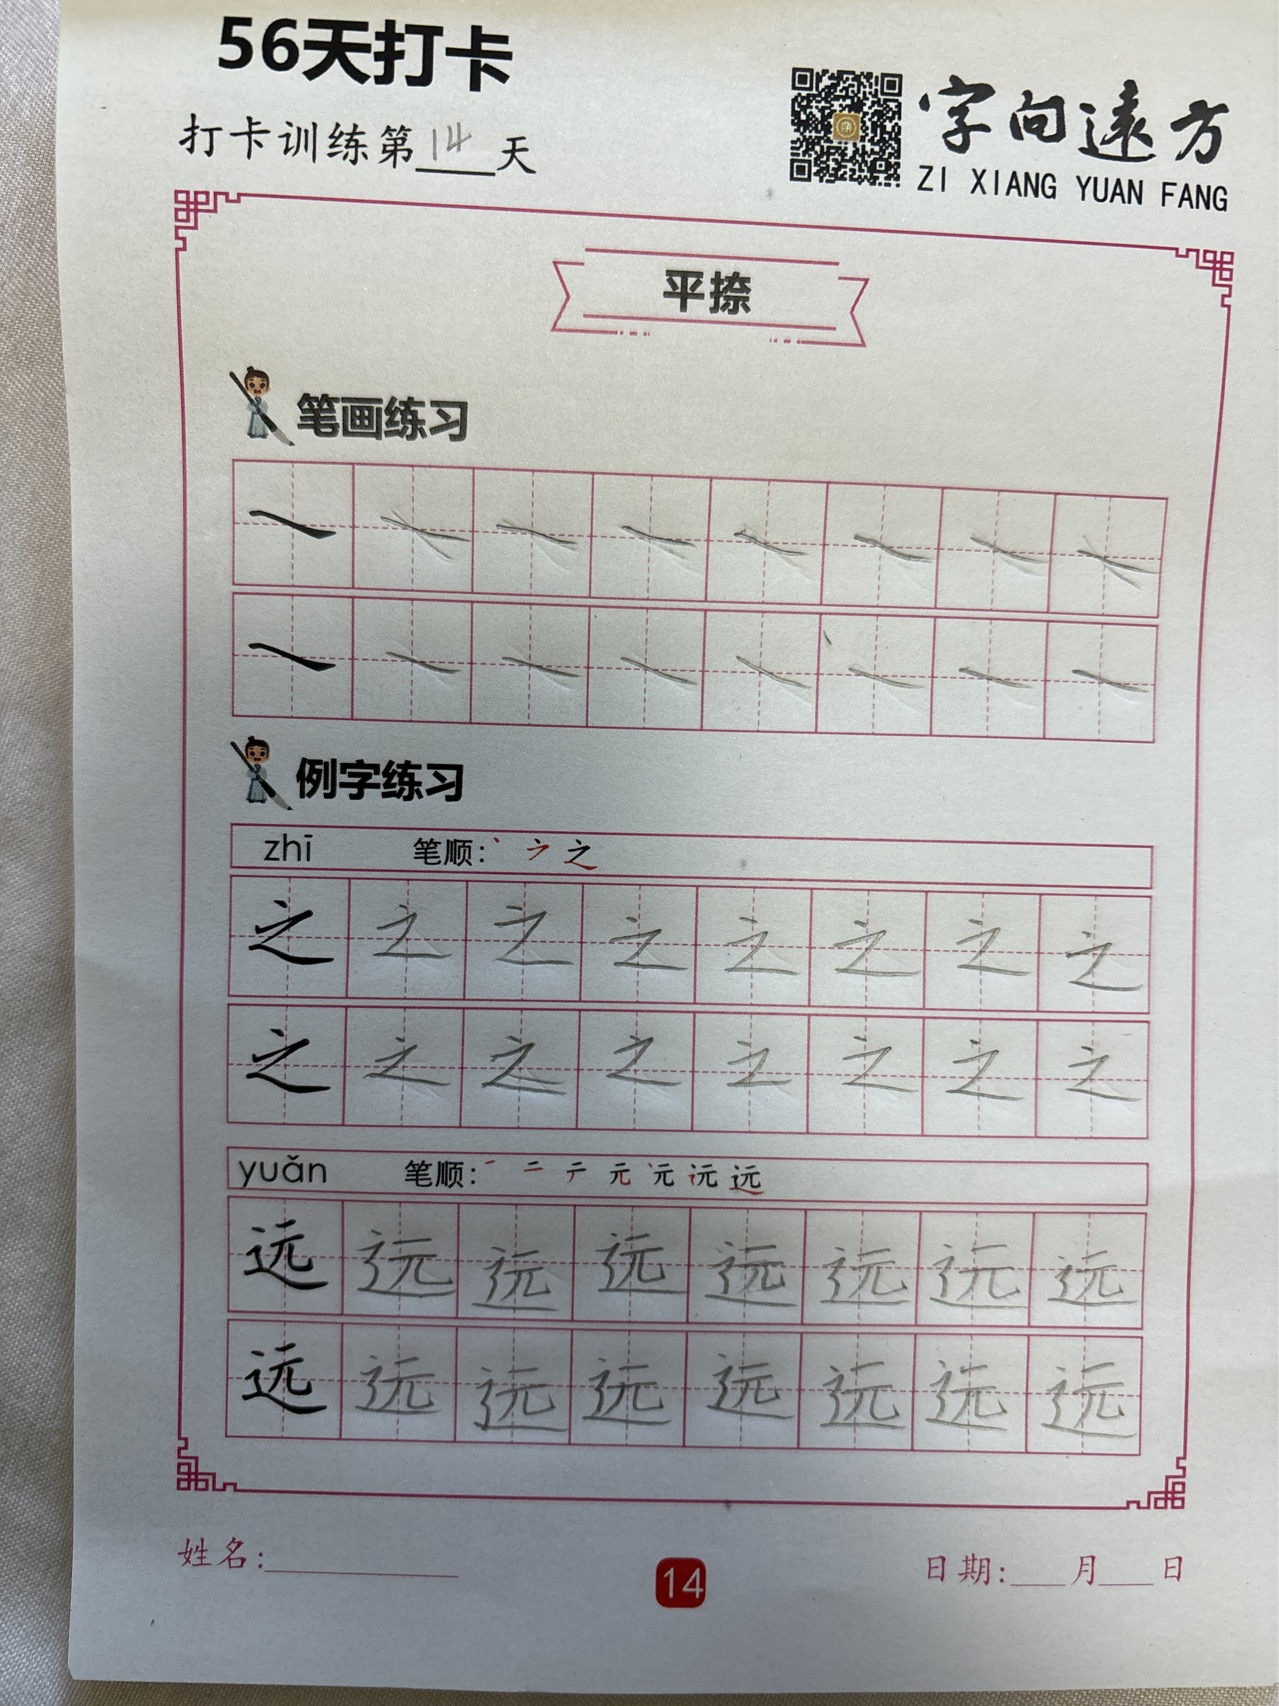 56天打卡
打卡训练第14天
字向遠方
ZI XIANG YUAN FANG
平捺
笔画练习
例字练习
zhī 笔顺: 之
之 之 之 之 之 之 之 之
之 之 之 之 之 之 之 之
yuǎn 笔顺: 一 二 テ 元 元 远 远
远 远 远 远 远 远 远 远
远 远 远 远 远 远 远 远
姓名:
14
日期: 月 日